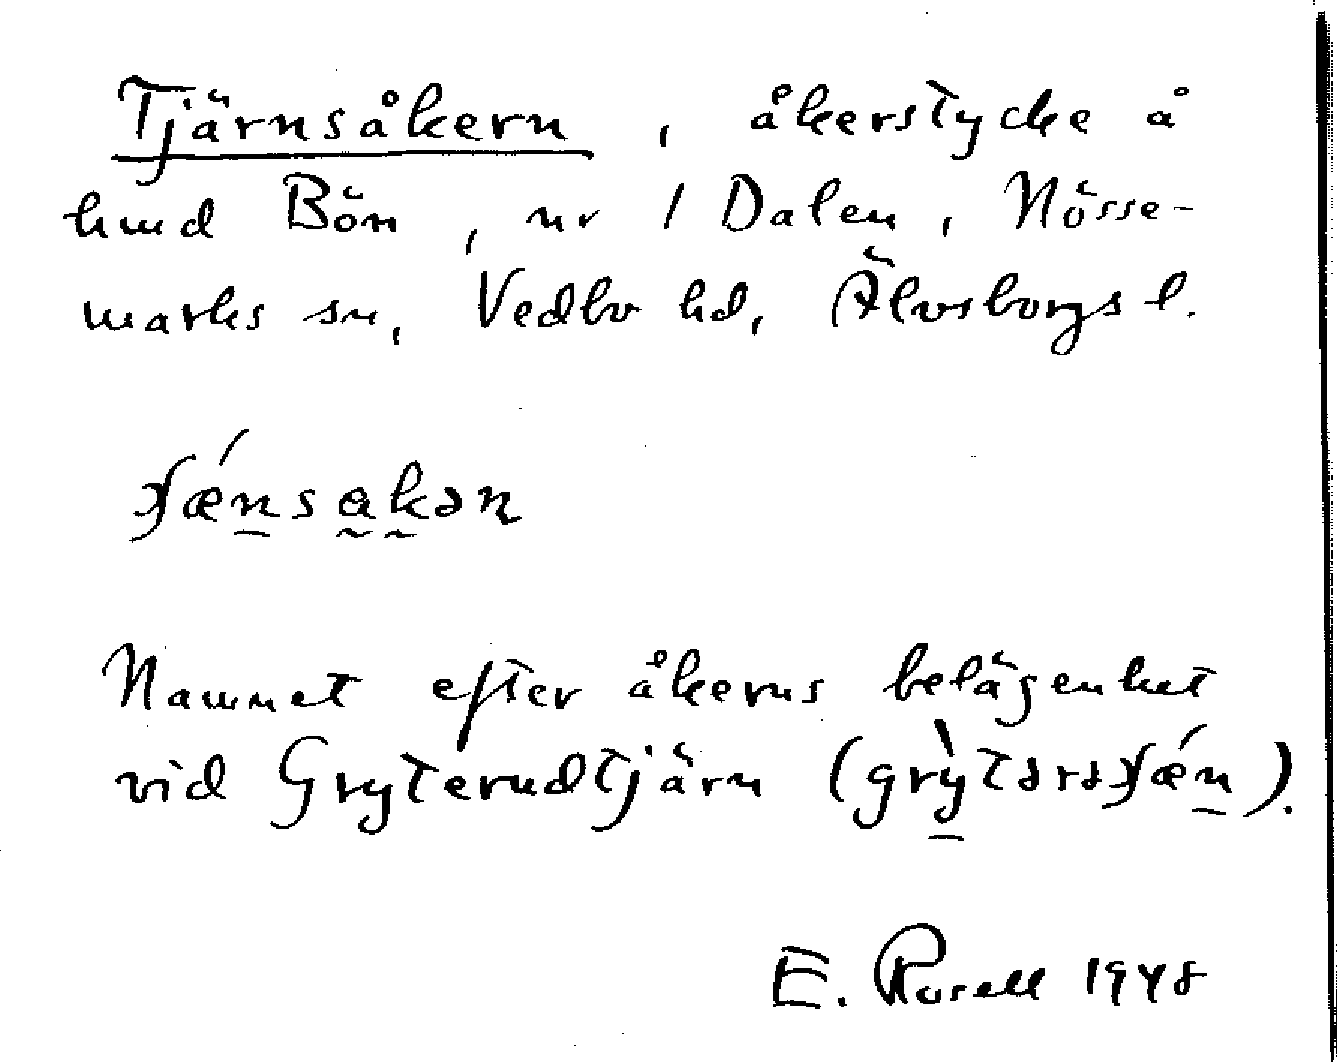 Tjärnsåkern, åkerstycke å
hmd Bön, nr 1 Dalen, Nösse-
marks sn, Vedbo hd, Älvsborgs l.
Namnet efter åkerns belägenhet
vid Gryterudtjärn
E. Rosell 1948